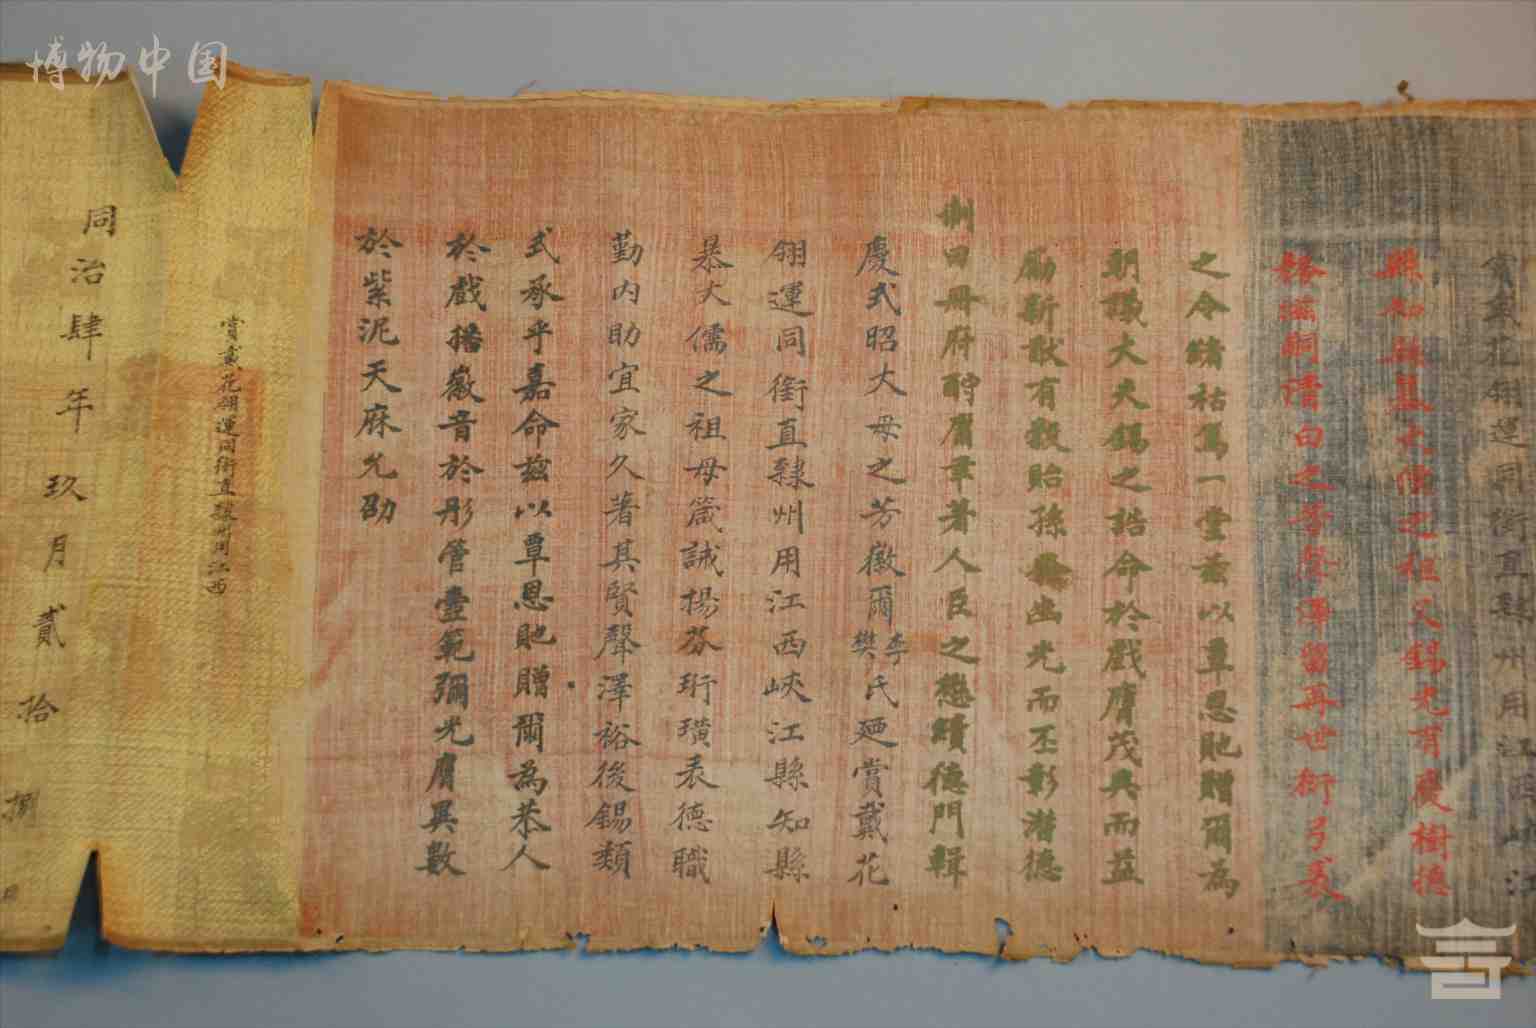 博物中国
賞戴花翎運同銜直隸州用江西峽江
縣知縣暴大儒之祖父錫光有慶樹德
務滋嗣清白之芳聲澤留再世衍弓裘
之令緒祜篤一堂茲以覃恩貤贈爾為
朝議大夫錫之誥命於戲膺茂典而益
勵新猷有穀貽孫發幽光而丕彰潛德
制曰冊府酬庸聿著人臣之懋績德門輯
慶式昭大母之芳徽爾李樊氏廼賞戴花
翎運同銜直隸州用江西峽江縣知縣
暴大儒之祖母箴誡揚芬珩璜表德職
勤內助宜家久著其賢聲澤裕後錫類
式承乎嘉命茲以覃恩貤贈爾為恭人
於戲播徽音於彤管壼範彌光膺異數
於紫泥天庥允劭
賞戴花翎運同銜直隸州用江西
同治肆年玖月貳拾捌日